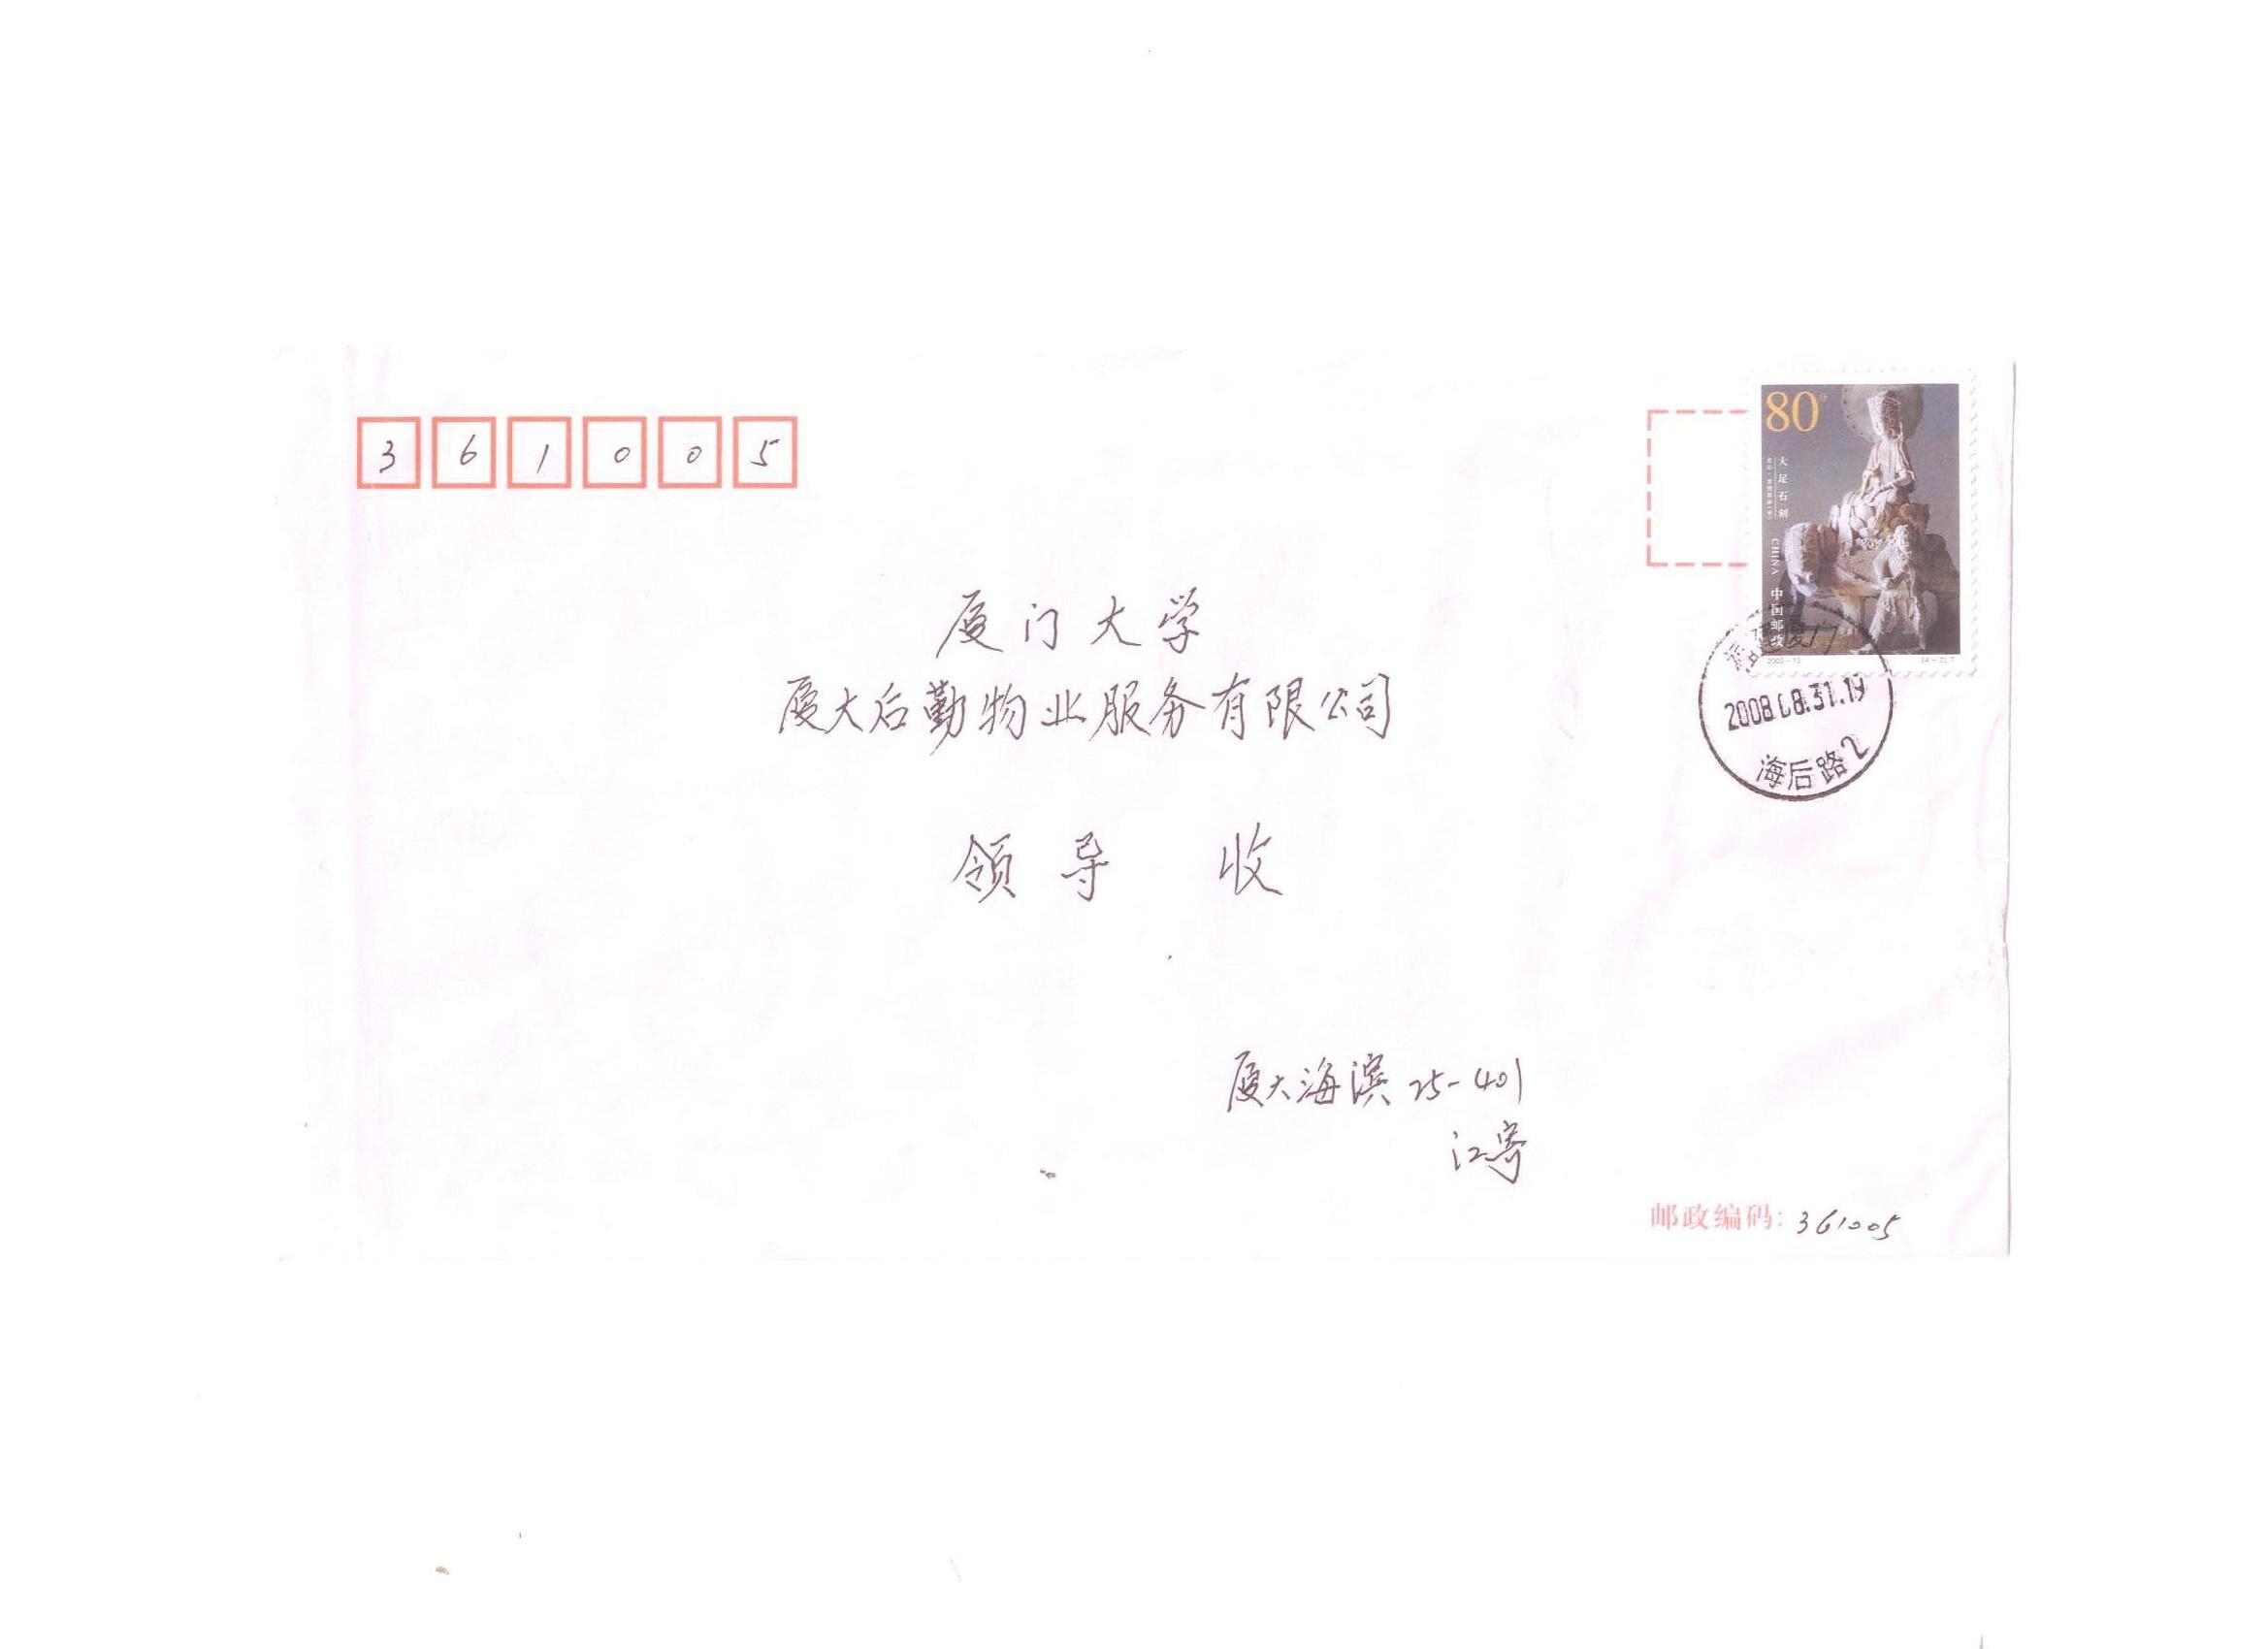 361005
80分
大足石刻
CHINA 中国邮政
2002-13
(4-2)T
福建厦门
2008.08.31.19
海后路2
厦门大学
厦大后勤物业服务有限公司
领导 收
厦大海滨25-401
江寄
邮政编码：361005